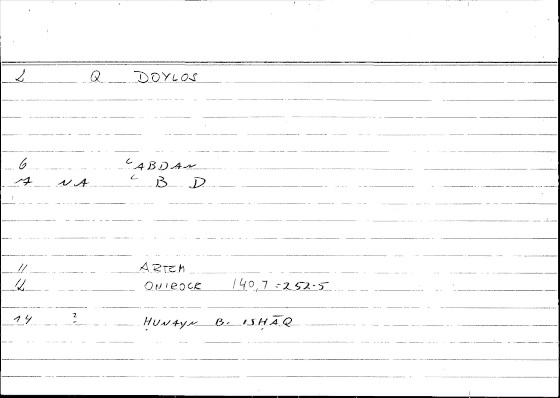 2 Q DOYLOS
6 ʿABDAN
NA ʿ B D
11 ARTEM
12 ONIROCR 140,7 = 252-5
14 ? ḤUNAYN B. ISḤĀQ